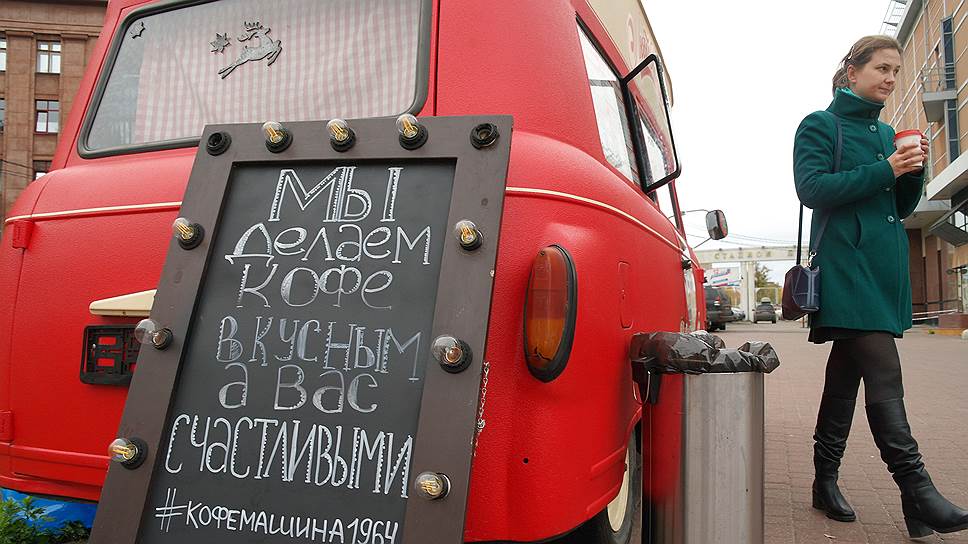 СТАДИОН
МЫ
ДЕЛАЕМ
КОФЕ
ВКУСНЫМ
А ВАС
СЧАСТЛИВЫМИ
#КОФЕМАШИНА1964